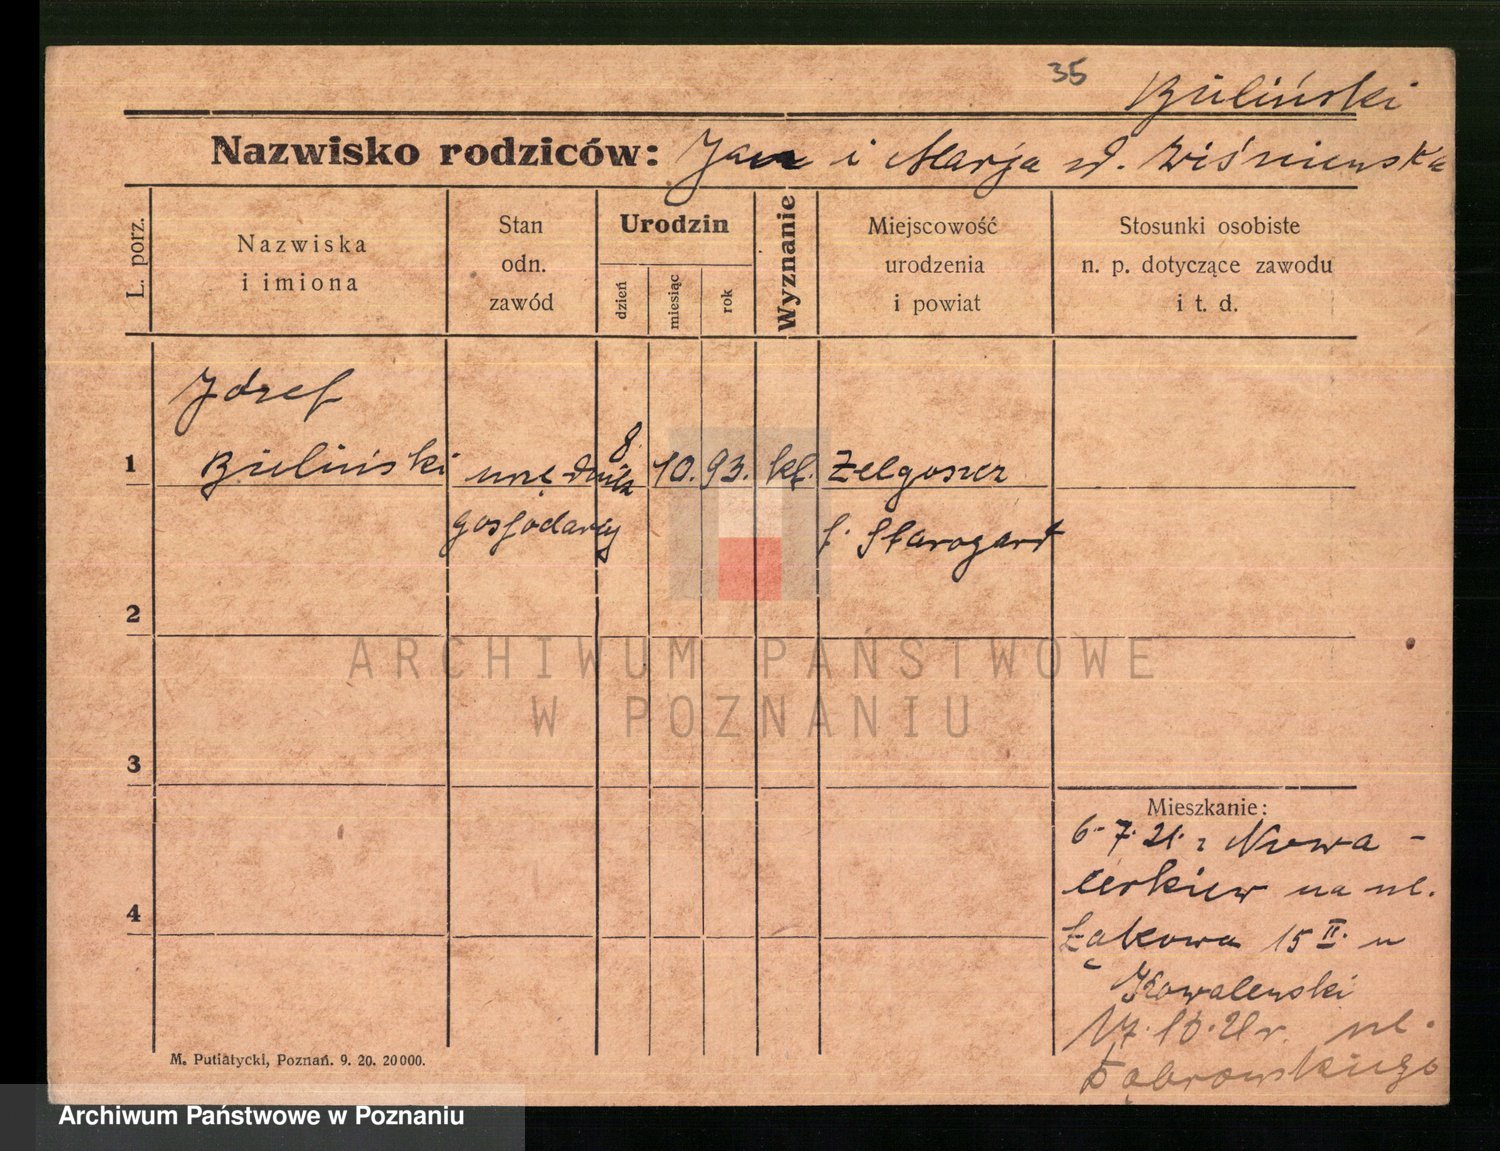 35
Bieliński
Nazwisko rodziców: Jan i Marja d. Wiśniewska
L. porz.
Nazwiska
i imiona
Stan
odn.
zawód
Urodzin
dzień
miesiąc
rok
Wyznanie
Miejscowość
urodzenia
i powiat
Stosunki osobiste
n. p. dotyczące zawodu
i t. d.
1
Józef
Bieliński
urzędnik
gospodarczy
8. 10. 93. kt. Zelgoszcz
p. Starogard
2
3
4
Mieszkanie:
6. 7. 21. z Nowa-
cerkiew na ul.
Łąkowa 15 II. u
Kowalewski
17. 10. 21 r. ul.
Dąbrowskiego
M. Putiatycki, Poznań. 9. 20. 20000.
ARCHIWUM PAŃSTWOWE
W POZNANIU
Archiwum Państwowe w Poznaniu